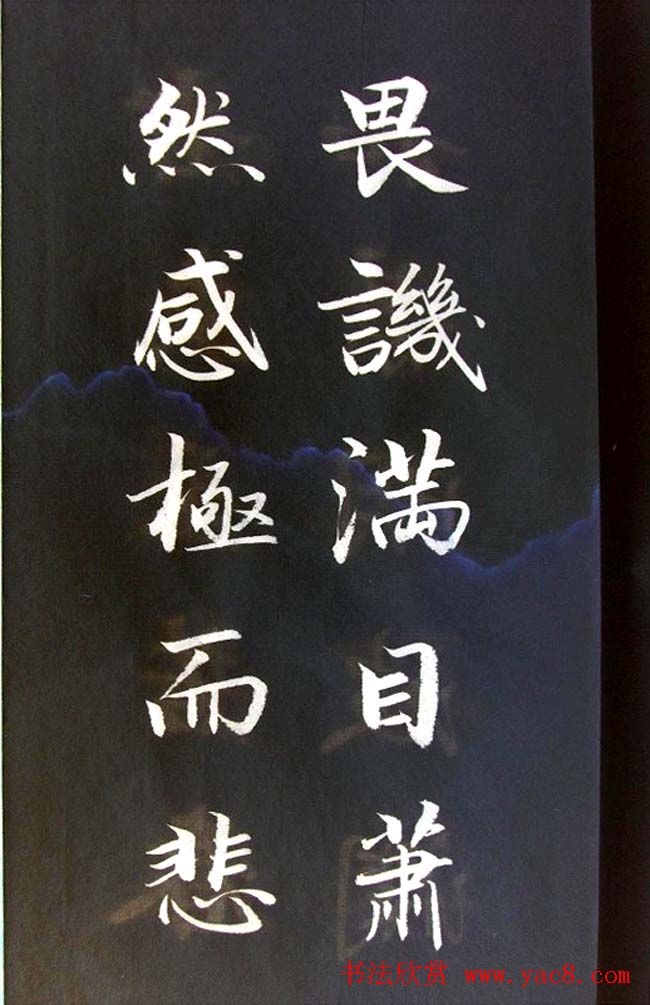 畏譏満目蕭
然感極而悲
书法欣赏 www.yac8.com